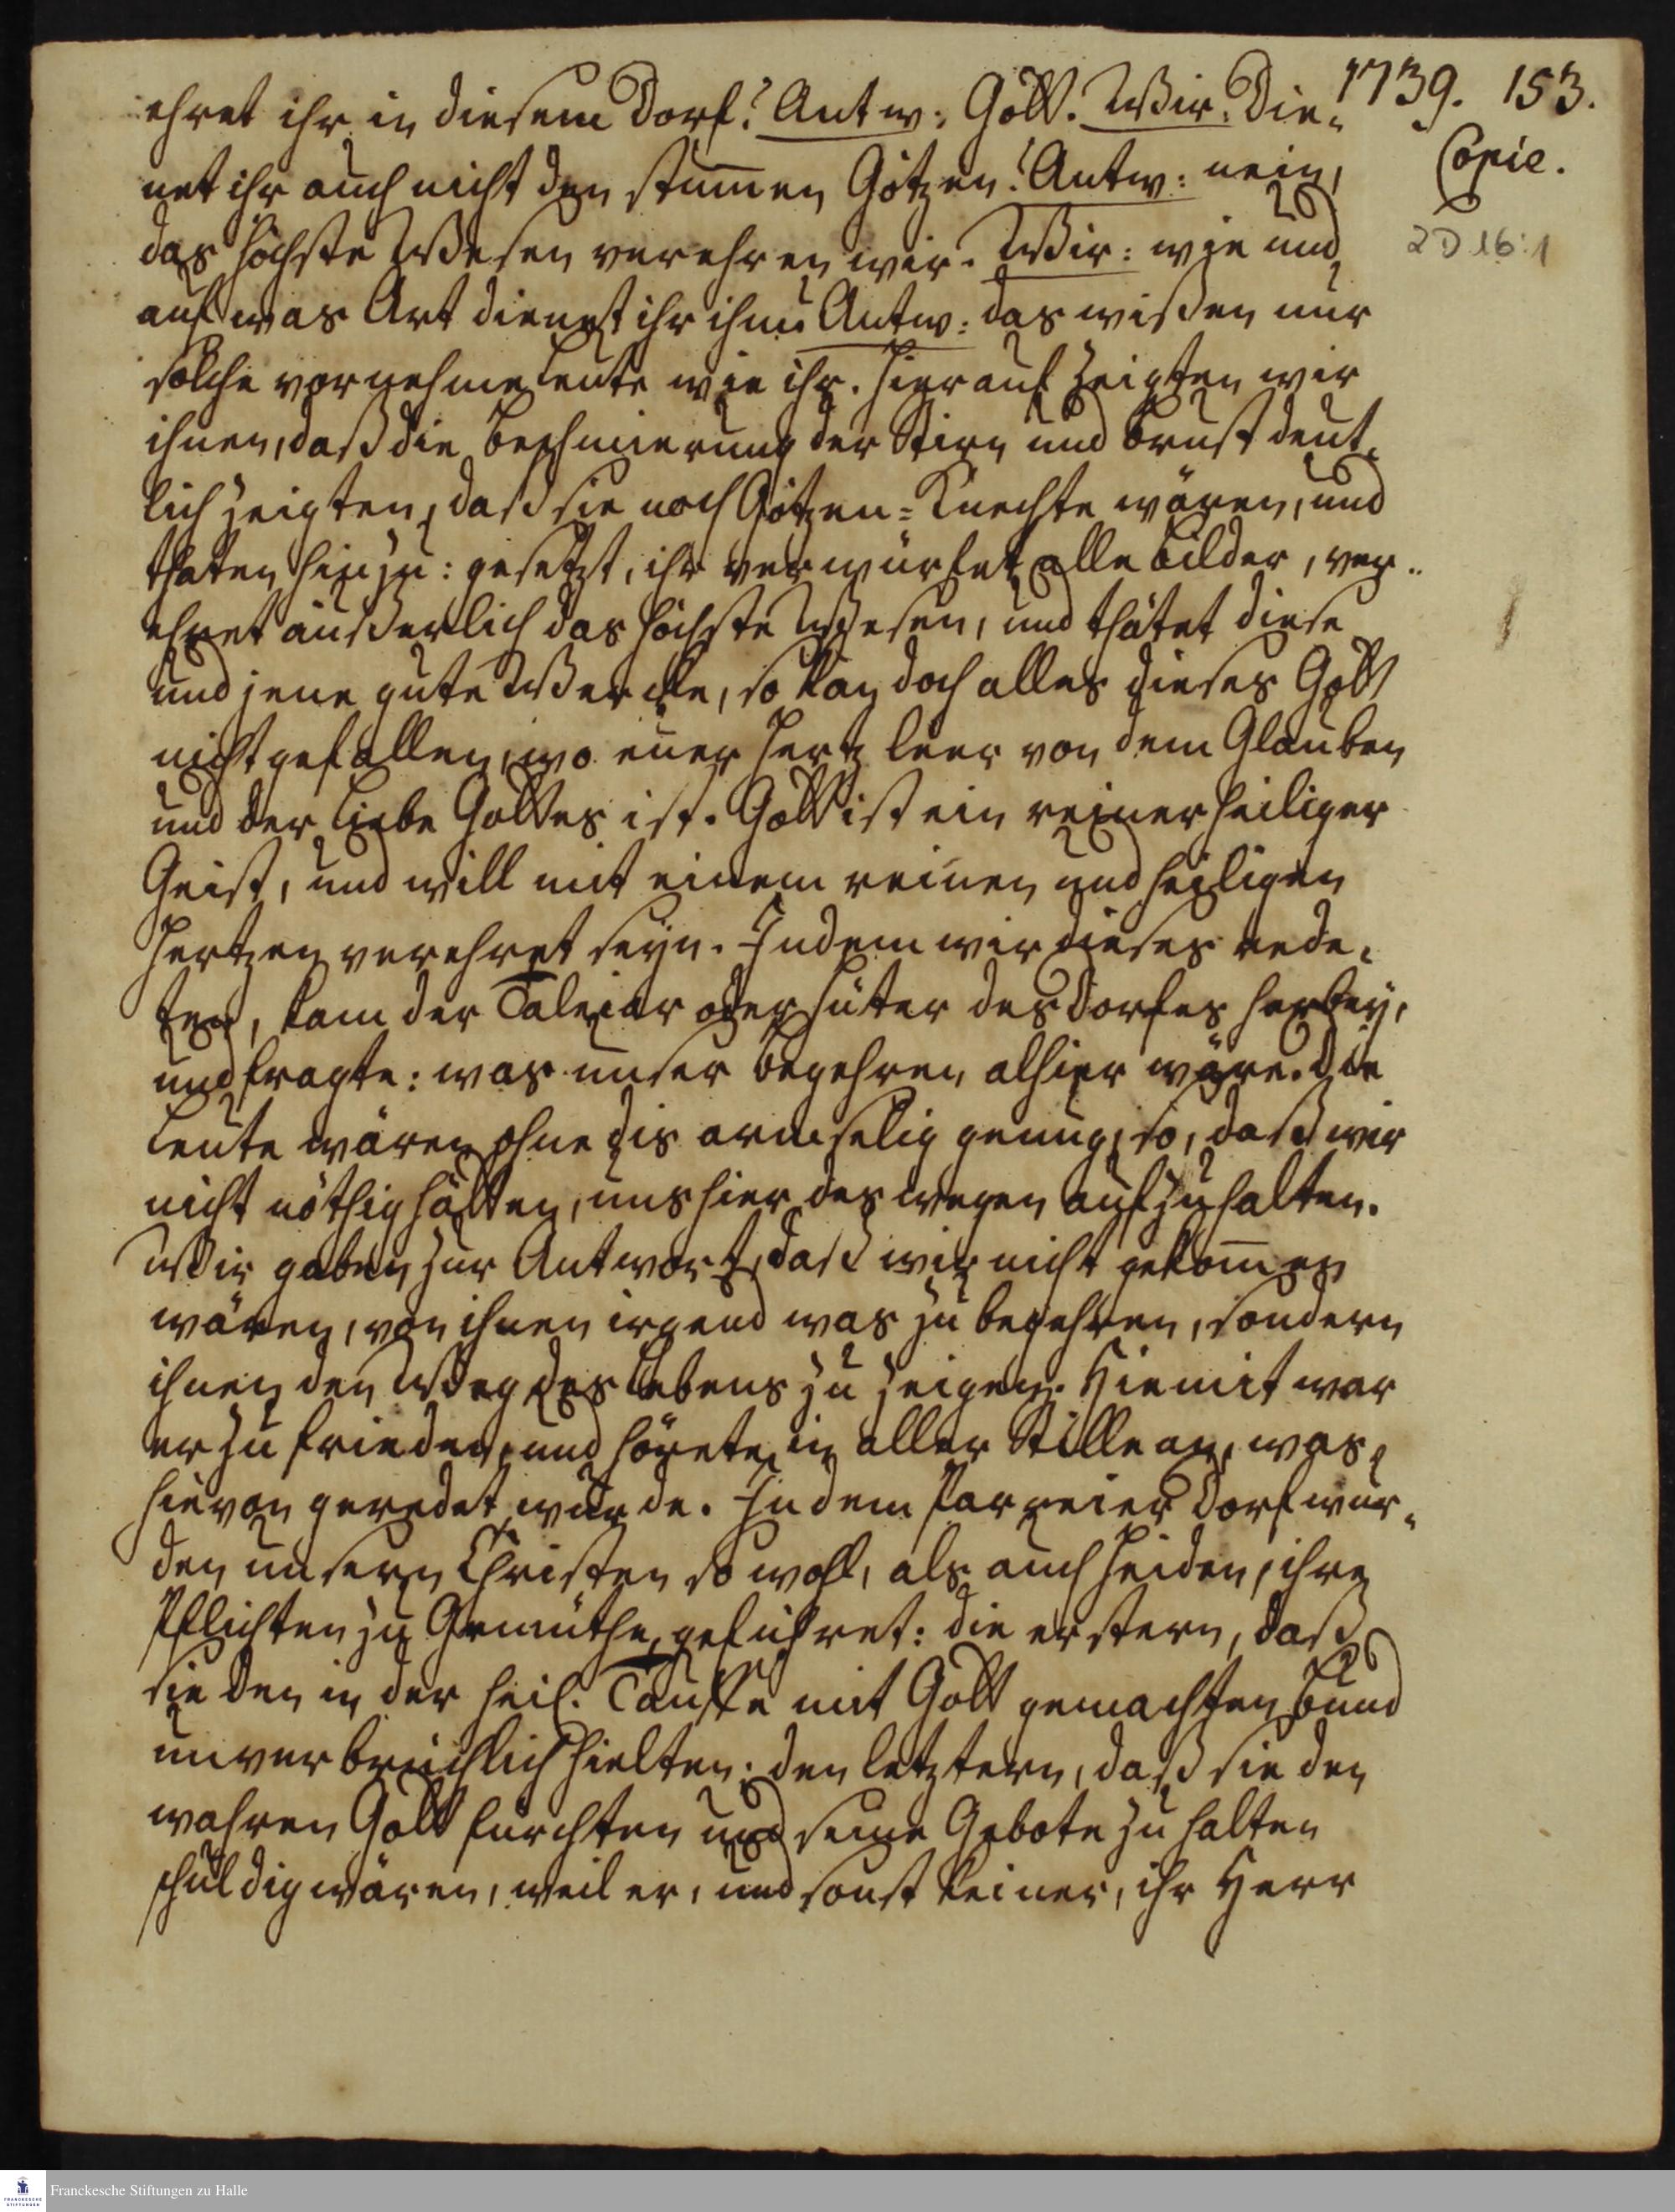 1739. 153.
Copie.
2 D 16:1
ehret ihr in diesem Dorf? Antw: Gott. Wir: Die-
net ihr auch nicht den stum̄en Götzen? Antw: nein,
das höchste Wesen verehren wir. Wir: wie und
auf was Art dienet ihr ihm? Antw: das wißen nur
solche vornehme Leute wie ihr. Hierauf zeigten wir
ihnen, daß die Beschmierung der Stirn und Brust deut-
lich zeigten, daß sie noch Götzen-Knechte wären, und
thaten hinzu: gesetzt, ihr verwürfet alle Bilder, ver-
ehret äußerlich das höchste Wesen, und thätet diese
und jene gute Wercke, so kan doch alles dieses Gott
nicht gefallen, wo euer Hertz leer von dem Glauben
und der Liebe Gottes ist. Gott ist ein reiner heiliger
Geist, und will mit einem reinen und heiligen
Hertzen verehret seyn. Indem wir dieses rede-
ten, kam der Taleiar oder Hüter des Dorfes herbey,
und fragte: was unser Begehren alhier wäre. Die
Leute wären ohne dis armselig genug, so, daß wir
nicht nöthig hätten, uns hier deswegen aufzuhalten.
Wir gaben zur Antwort, daß wir nicht gekom̄en
wären, von ihnen irgend was zu begehren, sondern
ihnen den Weg des Lebens zu zeigen. Hiemit war
er zu frieden, und hörete in aller Stille an, was
hievon geredet wurde. In dem Parreier Dorf wur-
den unsern Christen so wohl, als auch Heiden, ihre
Pflichten zu Gemüthe geführet: die erstern, daß
sie den in der heil. Tauffe mit Gott gemachten Bund
unverbrüchlich hielten: den letztern, daß sie den
wahren Gott fürchten und seine Gebote zu halten
schuldig wären, weil er, und sonst keiner, ihr Herr
Franckesche Stiftungen zu Halle